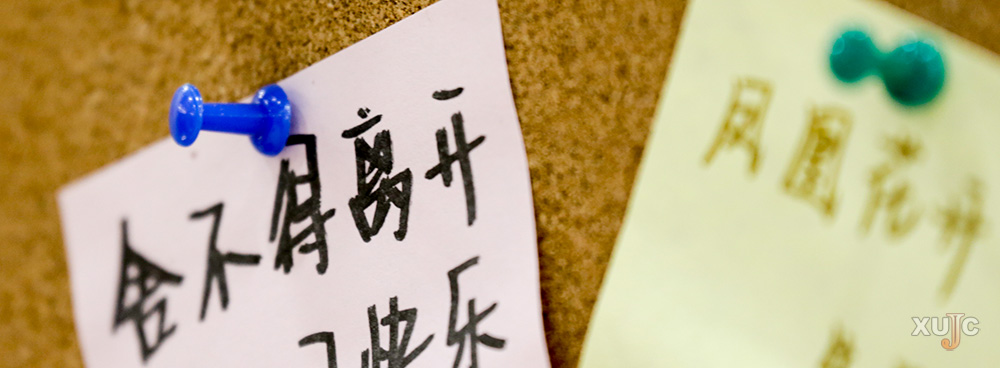 舍不得离开
快乐
凤凰花开
XUJC